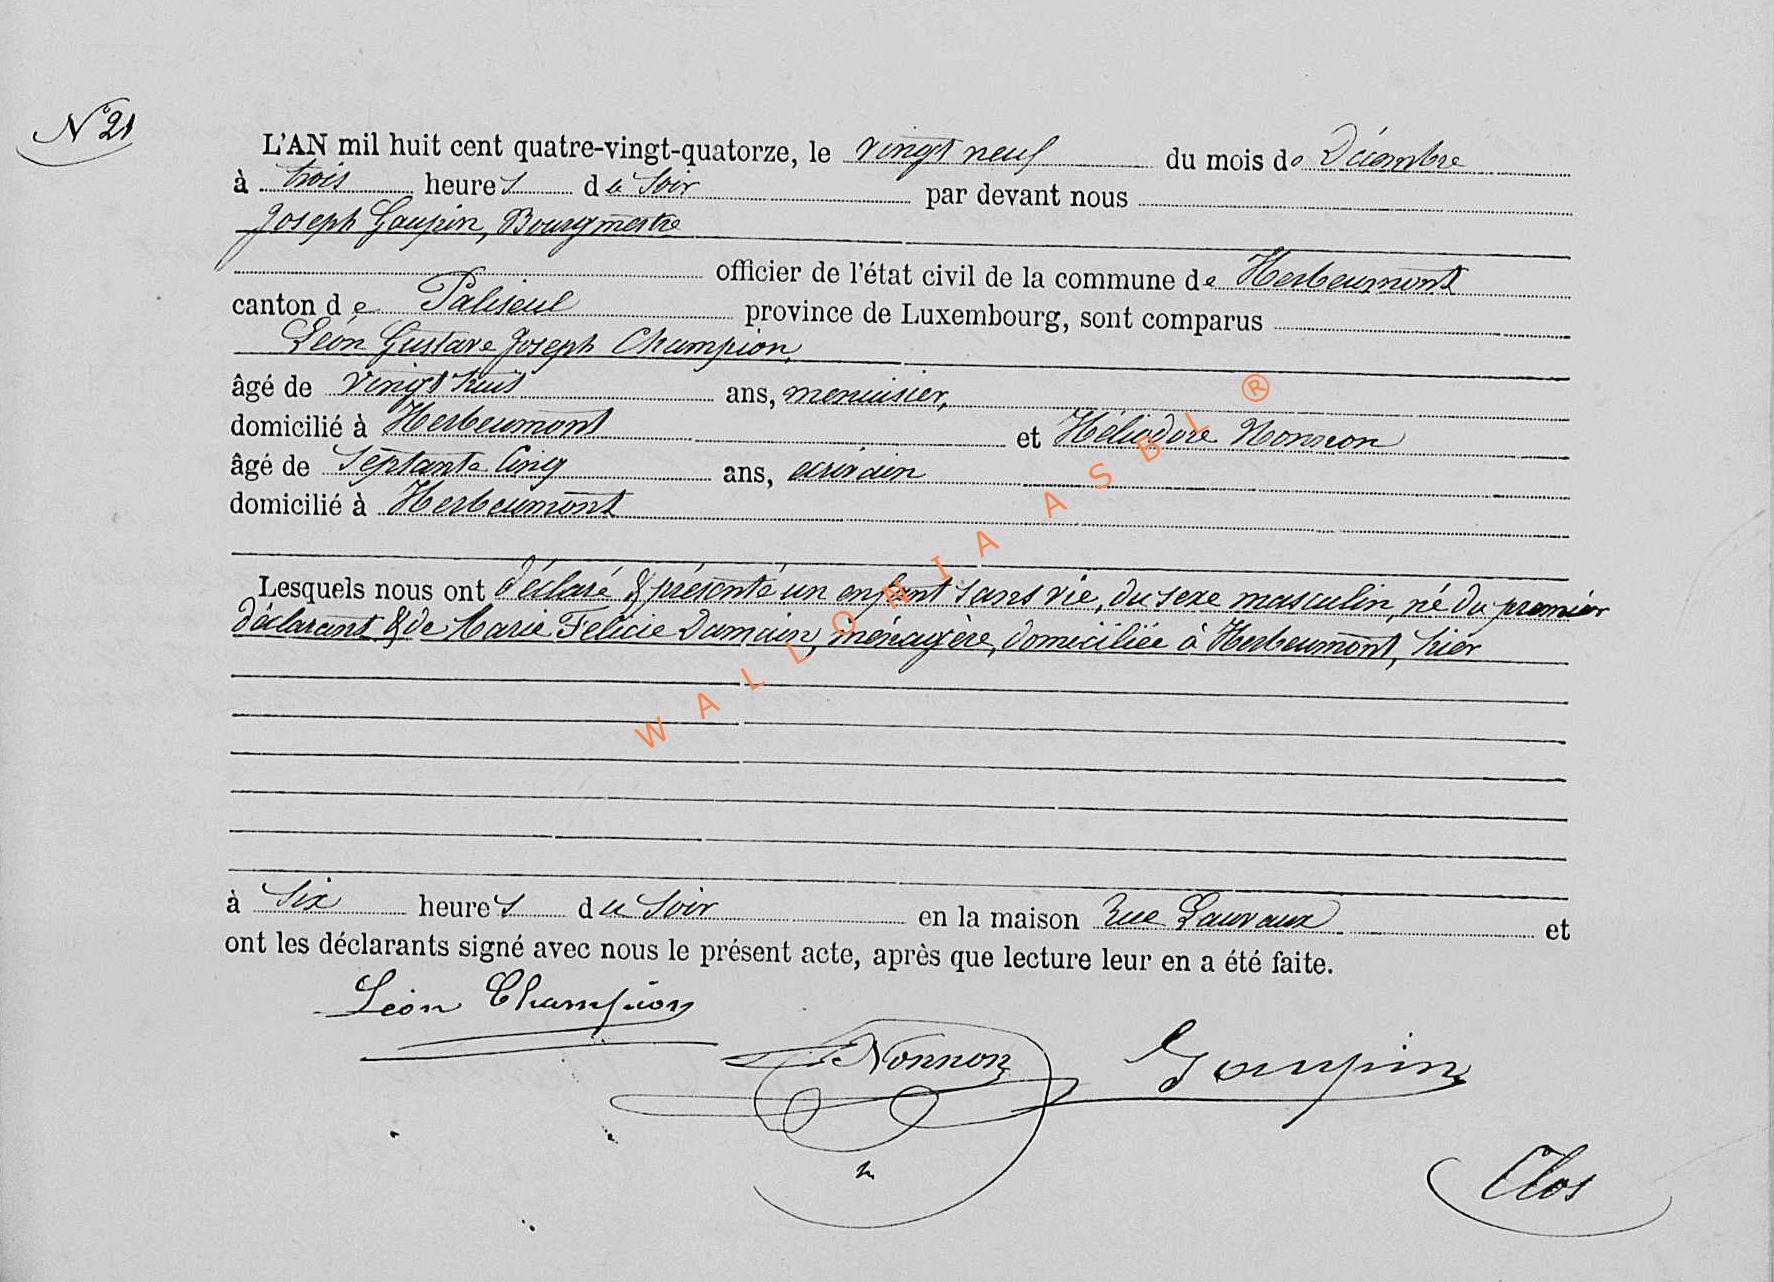 N° 21
L'AN mil huit cent quatre-vingt-quatorze, le vingt neuf du mois de Décembre
à trois heures du soir par devant nous
Joseph Goupin, Bourgmestre
officier de l'état civil de la commune de Herbeumont
canton de Paliseul province de Luxembourg, sont comparus
Léon Gustave Joseph Champion,
âgé de vingt huit ans, menuisier,
domicilié à Herbeumont et Héliodore Nonnon
âgé de septante cinq ans, écrivain
domicilié à Herbeumont
Lesquels nous ont déclaré & présenté un enfant sans vie, du sexe masculin, né du premier
déclarant & de Marie Félicie Damain, ménagère, domiciliée à Herbeumont, hier
à six heures du soir en la maison Rue Lauvaux et
ont les déclarants signé avec nous le présent acte, après que lecture leur en a été faite.
Léon Champion
Nonnon Goupin
Clos
WALLONIA ASBL ®